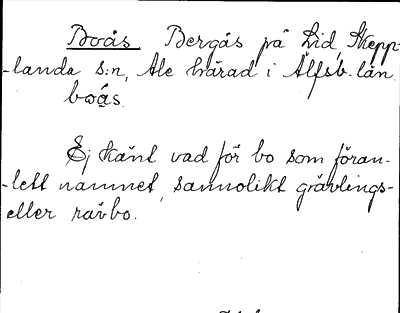 Boås Bergås på Lid, Skepp-
-landa s:n, Ale härad i Älfsb. län.
boås.
Ej känt vad för bo som föran-
-lett namnet, sannolikt grävlings-
eller rävbo.